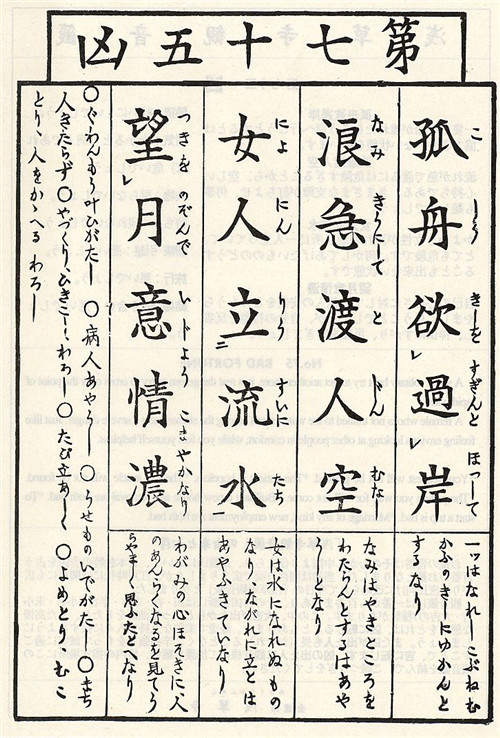 第七十五凶
孤舟欲過岸
こ しう きしを すぎんと ほつして
一ッはなれしこぶねむ
かふのきしにゆかんと
すなり
浪急渡人空
なみ きうにして じん むなし
なみはやきところを
わたらんとするはあや
うしとなり
女人立流水
によ にん りう すいに たち
女は水になれぬもの
なりながれに立とは
あやふきていなり
望月意情濃
つきを のぞんで い しよう こまやかなり
わがみの心ほそきに人
のあんらくなるを見てう
らやましく思ふたとへなり
○ぐわんもう叶ひがたし ○病人あやうし ○うせものいでがたし ○まち
人きたらず○やづくり、ひきこし、わろし○たび立あしく ○よめとり、むこ
とり、人をかゝへるわろし